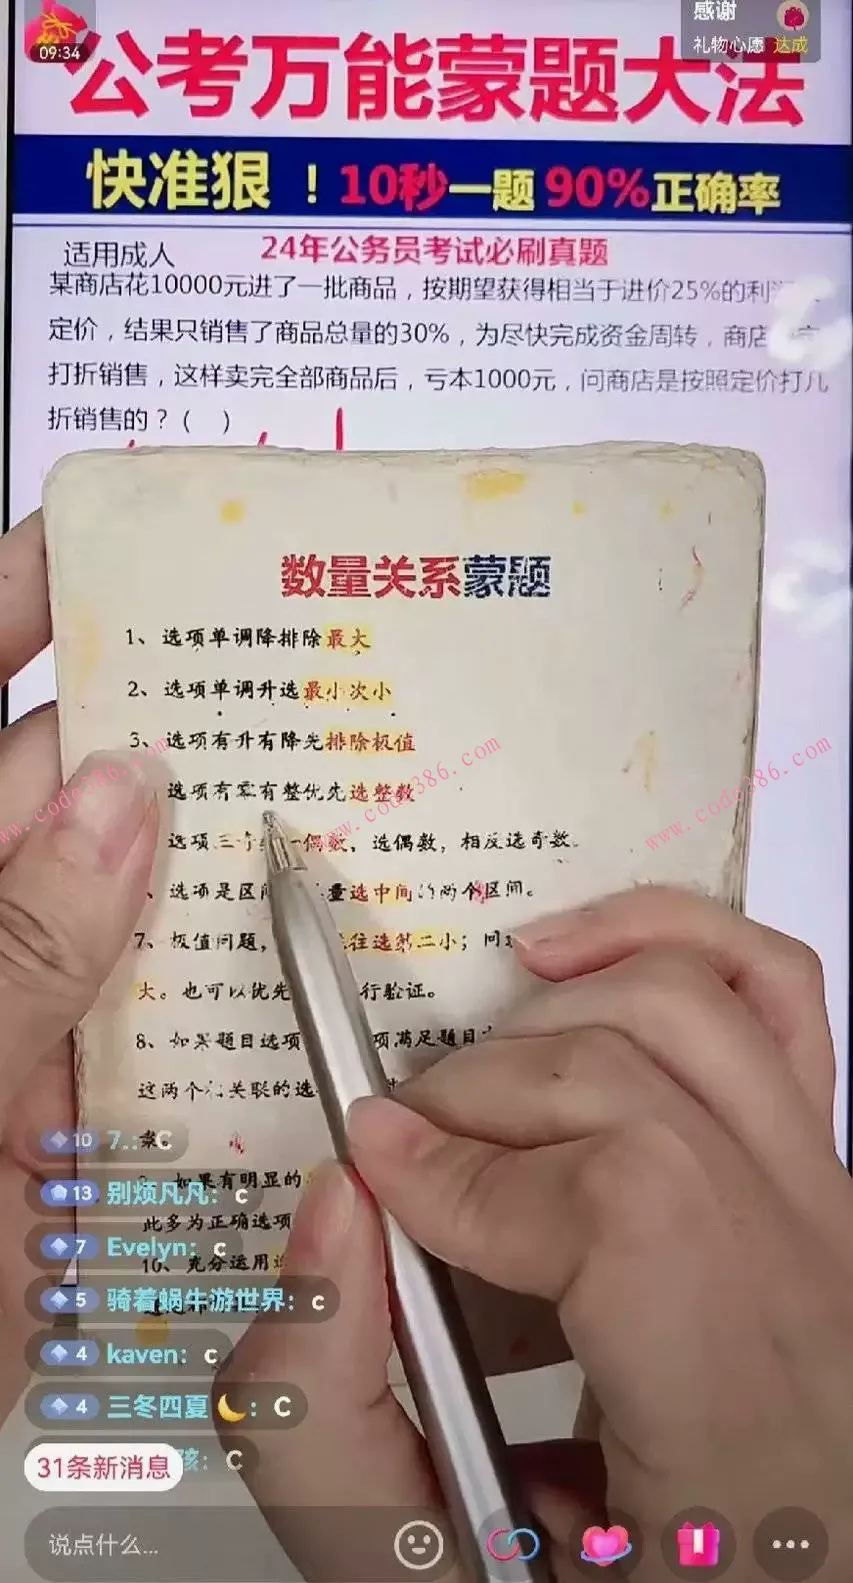 09:34
感谢
礼物心愿 达成
公考万能蒙题大法
快准狠！10秒一题 90%正确率
适用成人 24年公务员考试必刷真题
某商店花10000元进了一批商品，按期望获得相当于进价25%的利
定价，结果只销售了商品总量的30%，为尽快完成资金周转，商店
打折销售，这样卖完全部商品后，亏本1000元，问商店是按照定价打几
折销售的？（ ）
数量关系蒙题
1、选项单调降排除最大
2、选项单调升选最小次小
3、选项有升有降先排除极值
选项有零有整优先选整数
www.code386.com
www.code386.com
www.code386.com
选项三 一偶数，选偶数，相反选奇数。
、选项是区 量选中间的两个区间。
7、极值问题， 往选第二小；问
大。也可以优先 行验证。
8、如果题目选项 项满足题目
这两个相关联的选
案。
如果有明显的
此多为正确选项
10、充分运用
10 7.: C
13 别烦凡凡: c
7 Evelyn: c
5 骑着蜗牛游世界: c
4 kaven: c
4 三冬四夏🌙: C
孩: C
31条新消息
说点什么...